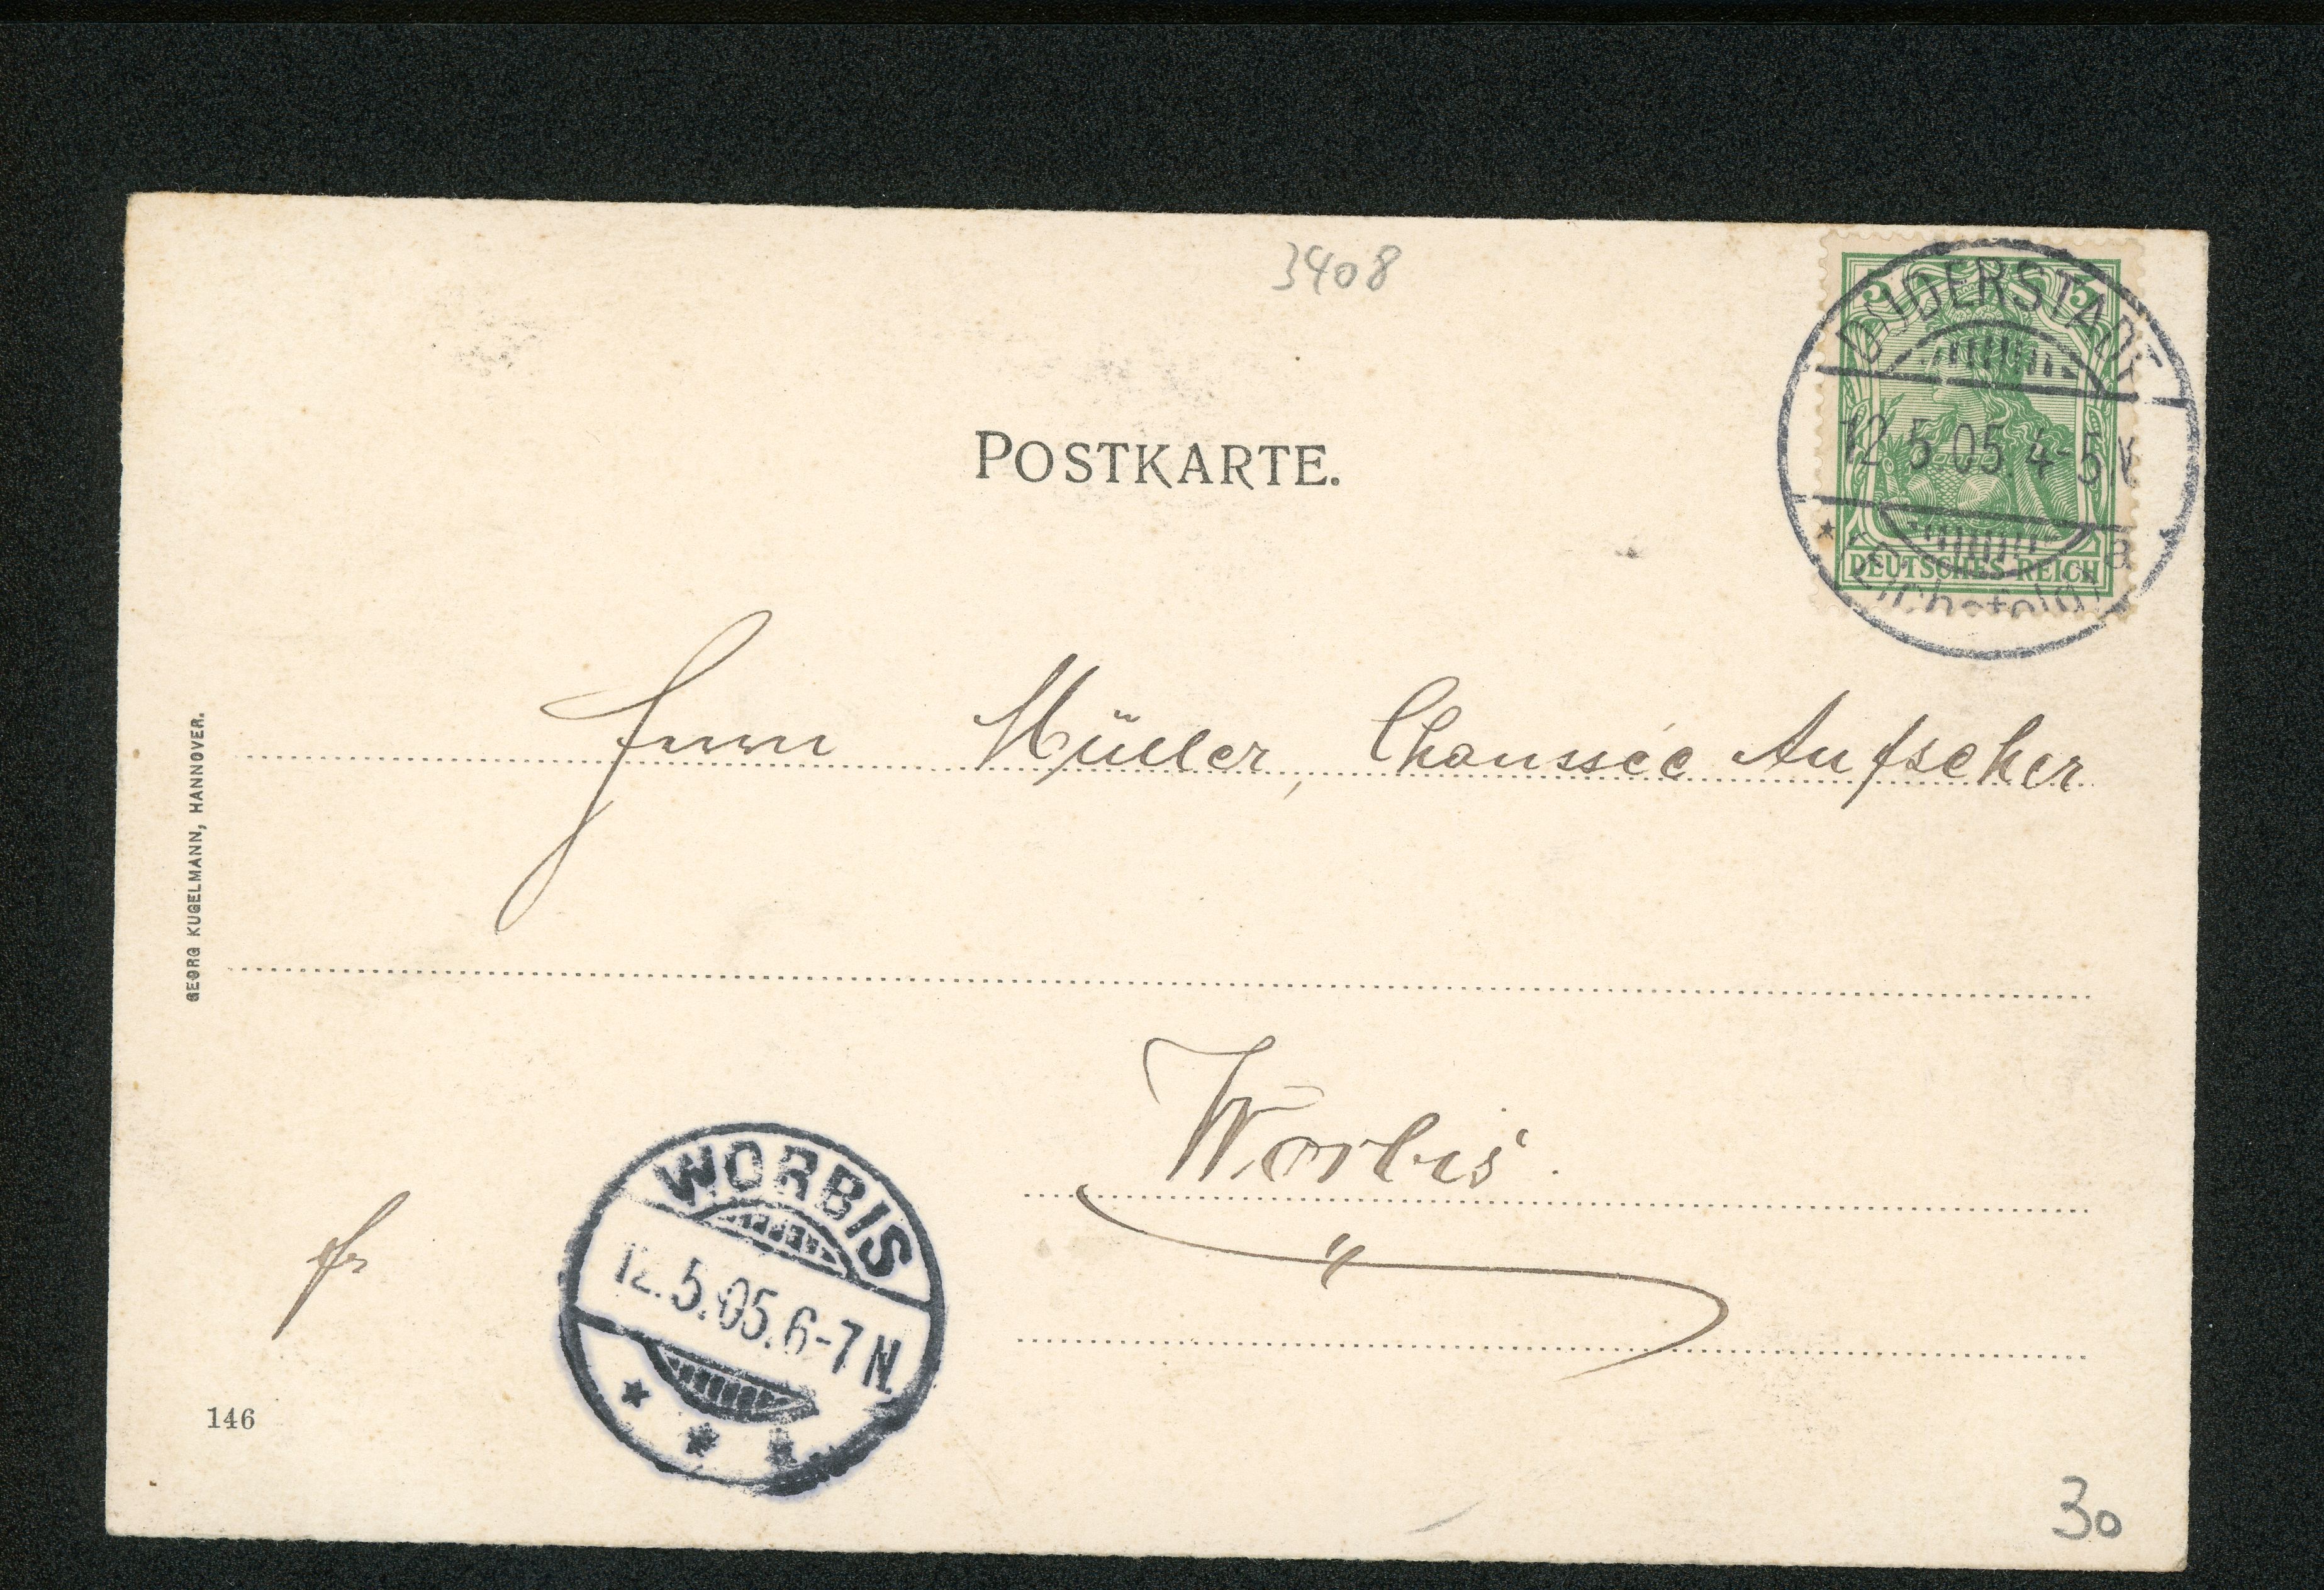 3408
5 5
DUDERSTADT
12.5.05.4-5 V
* a
(Eichsfeld)
DEUTSCHES REICH
POSTKARTE.
Herrn Müller, Chaussée Aufseher
GEORG KUGELMANN, HANNOVER.
Worbis.
WORBIS
12.5.05.6-7 N.
* * *
fr
146
30